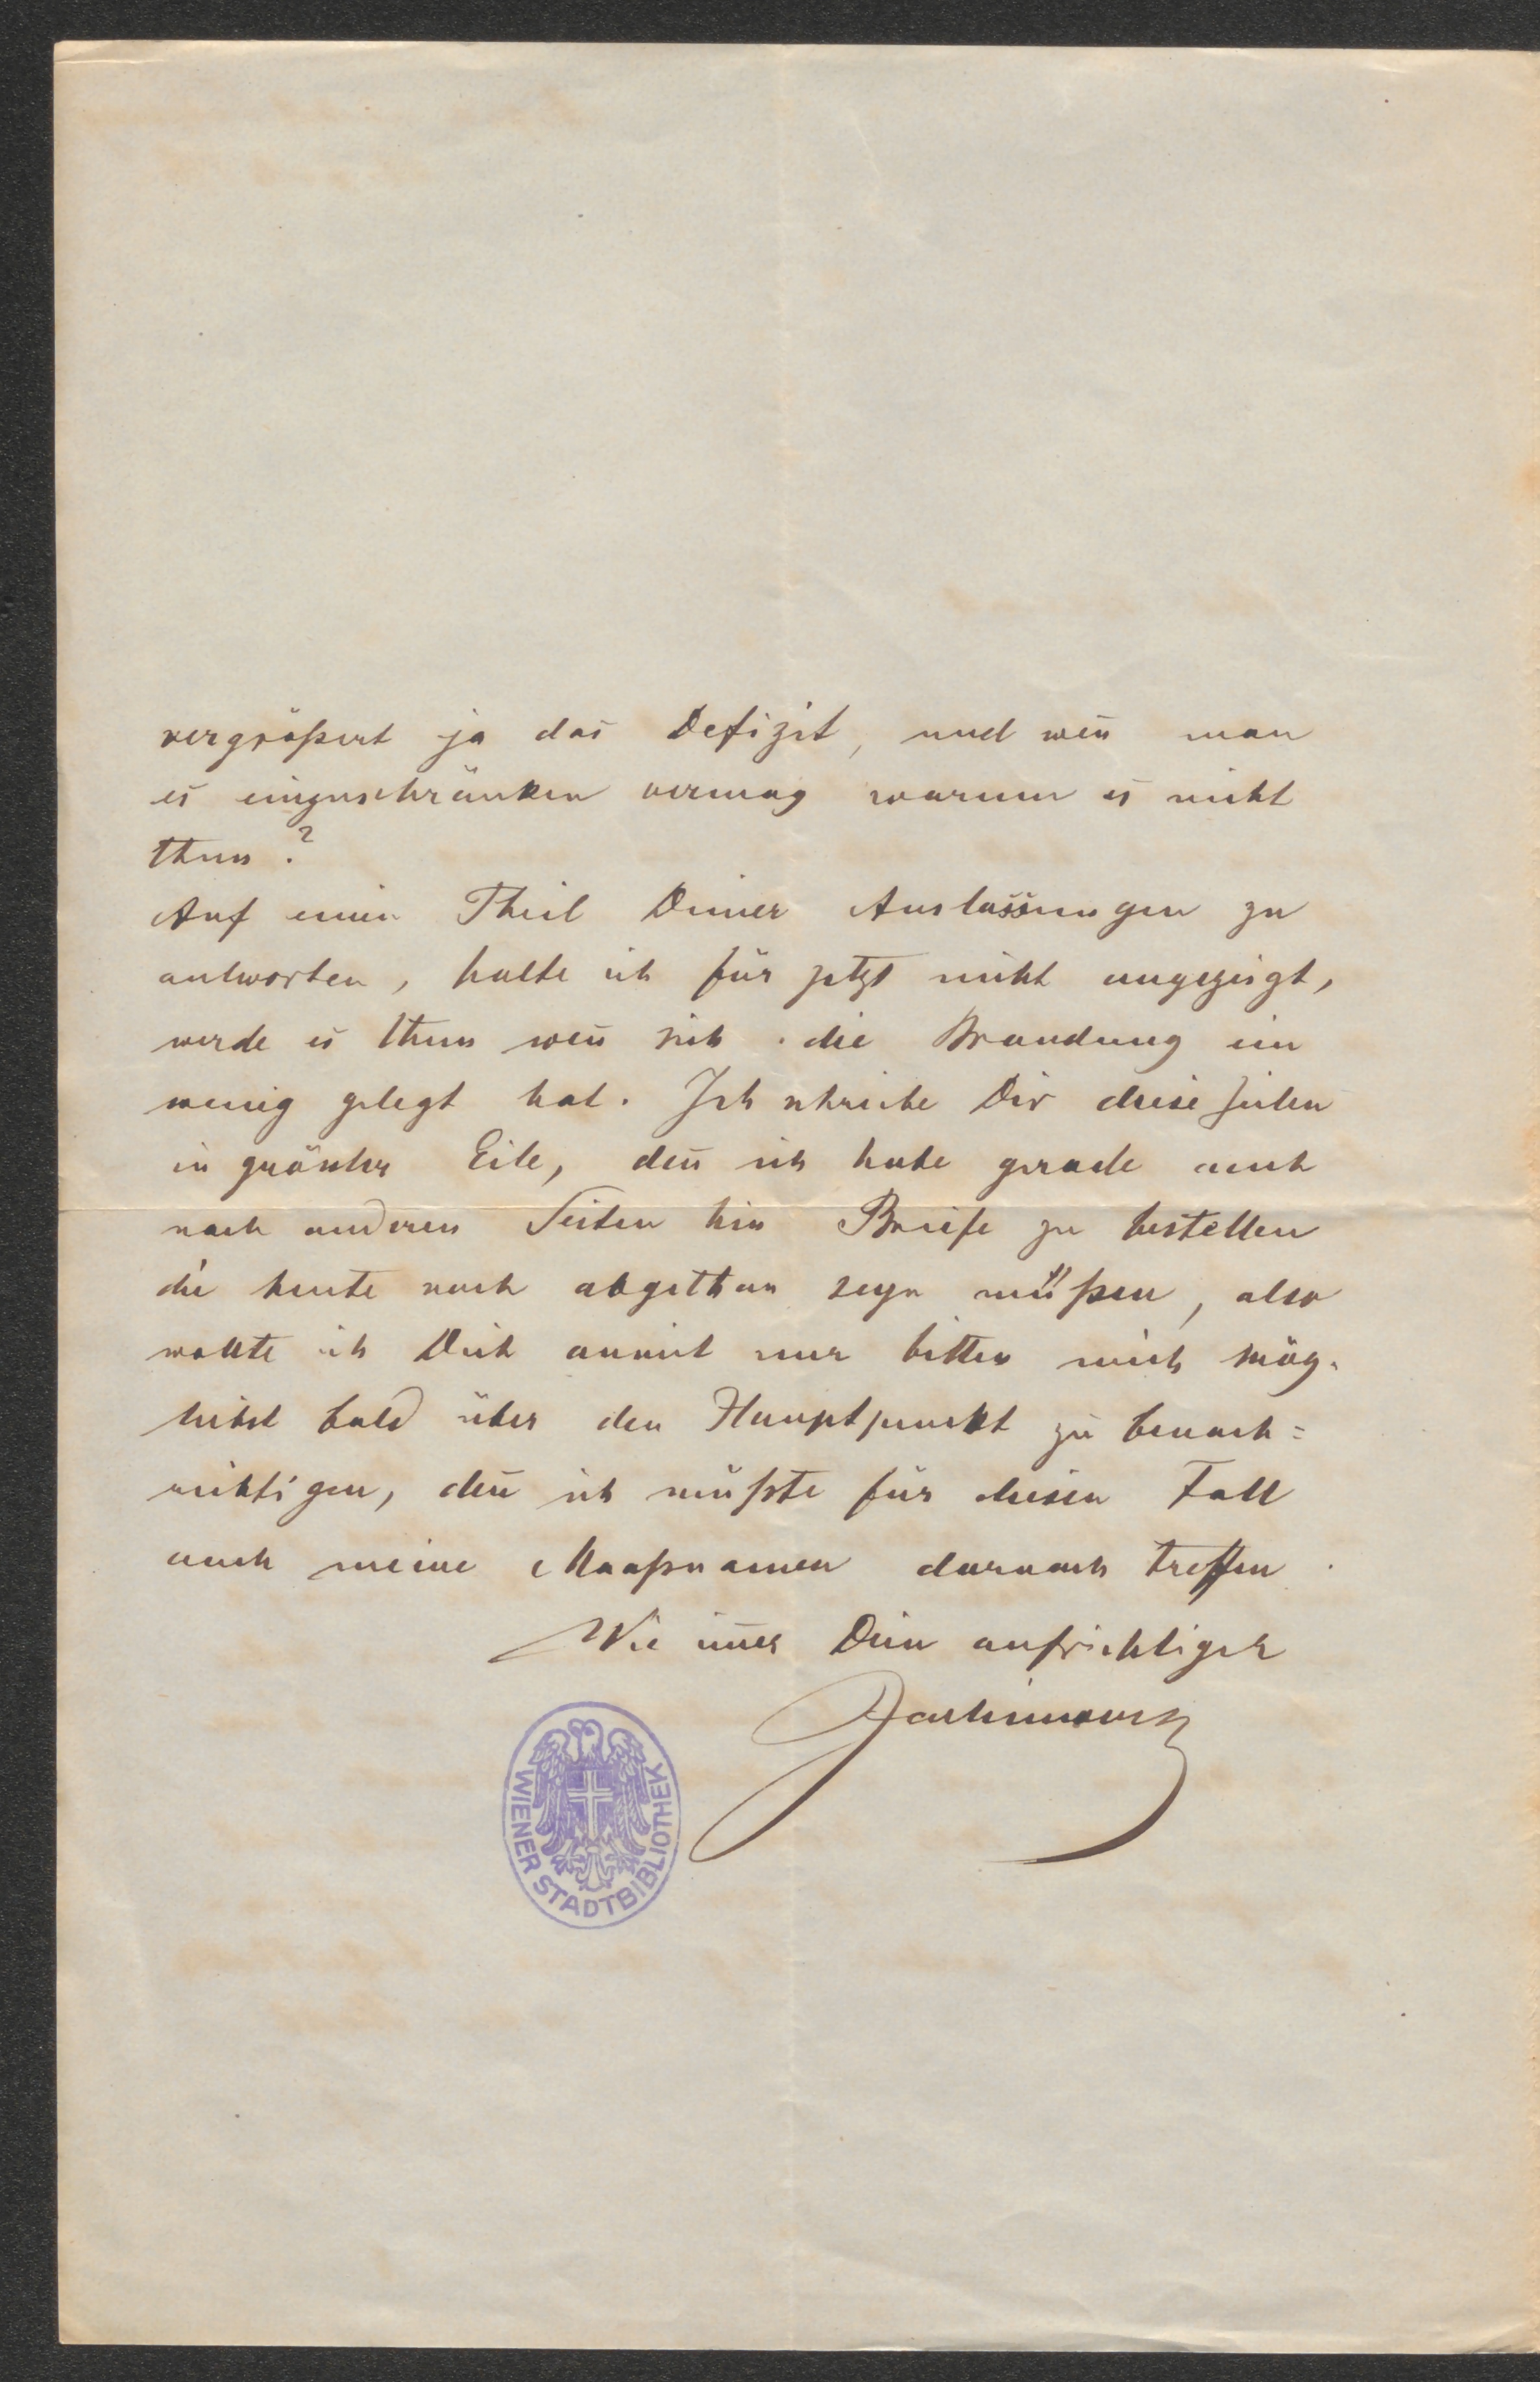 vergrößert ja das Defizit, und wen̄ man
es einzuschränken vermag warum es nicht
thun?
Auf einen Theil Deiner Auslassungen zu
antworten, halte ich für jetzt nicht angezeigt,
werde es thun wen̄ sich die Brandung ein
wenig gelegt hat. Ich schreibe Dir diese Zeilen
in grösster Eile, den̄ ich habe gerade auch
nach anderen Seiten hin Briefe zu bestellen
die heute noch abgethan seyn müßen, also
wollte ich Dich anmit nur bitten mich mög-
lichst bald über den Hauptpunkt zu benach=
richtigen, den̄ ich müßte für diesen Fall
auch meine Maaßnamen darnach treffen.
Wie im̄er Dein aufrichtiger
WIENER STADTBIBLIOTHEK